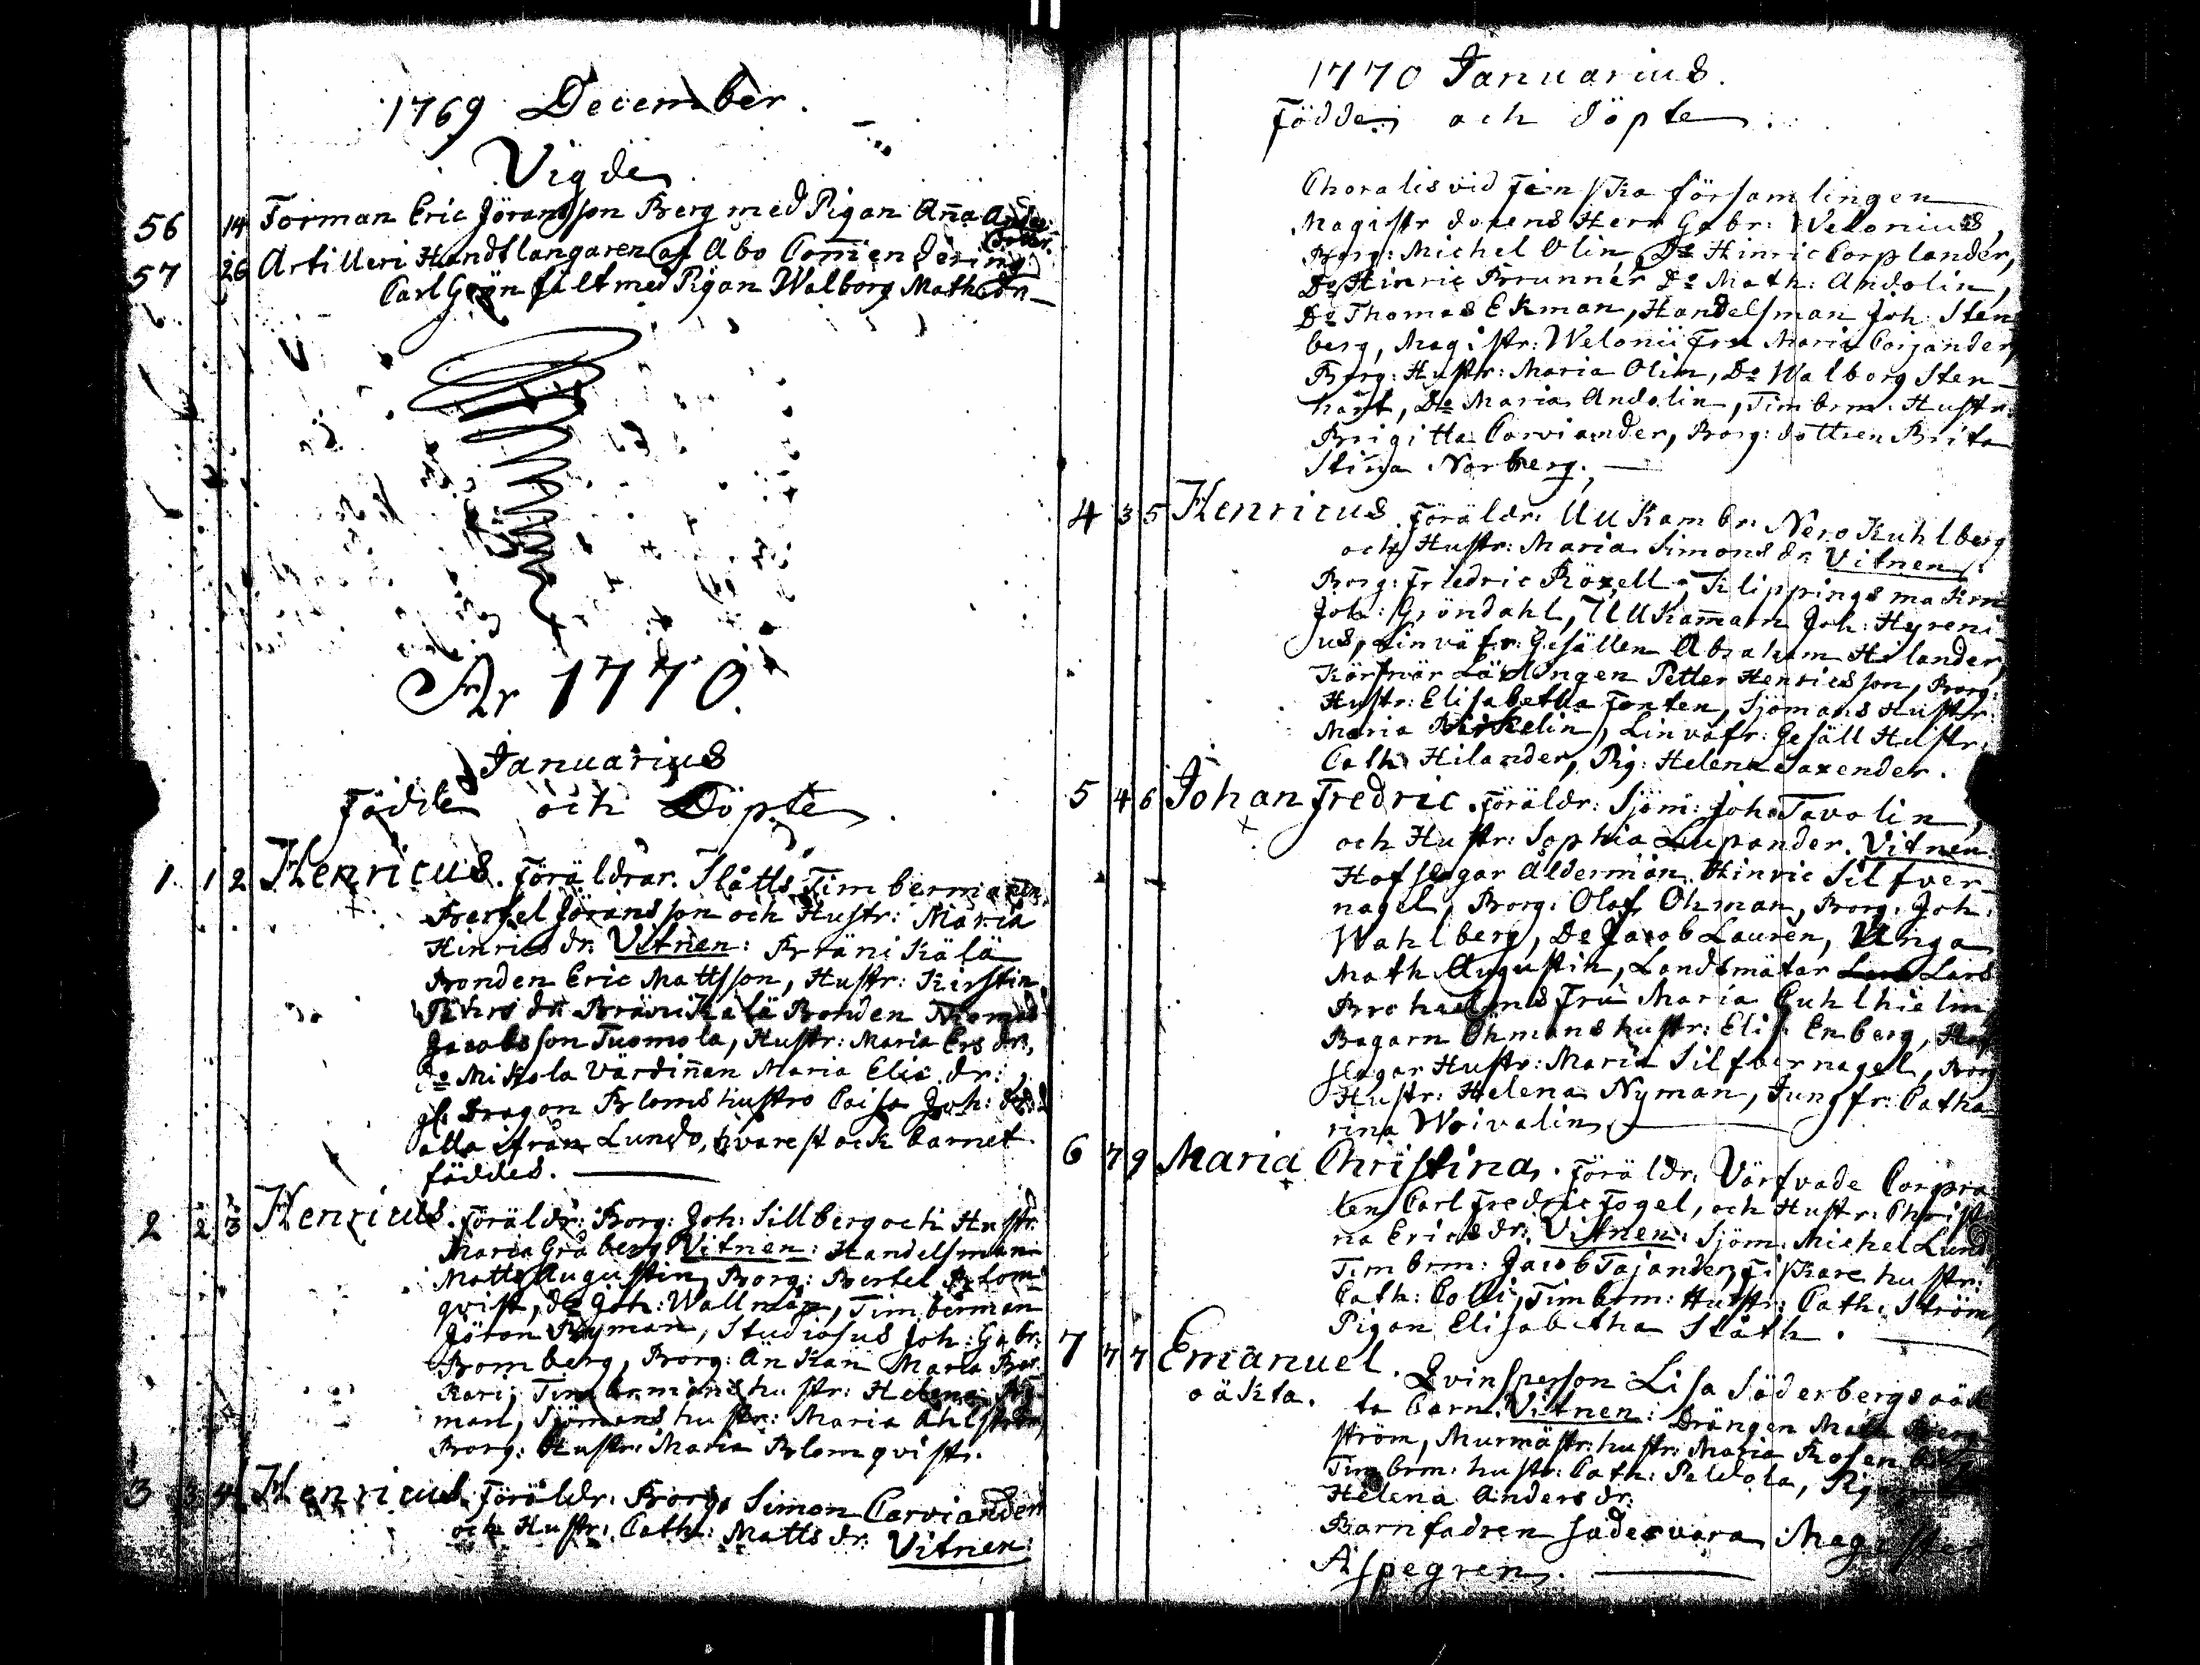 1769 December.
Vigde
56 14 Forman Eric Jöransson Berg med Pigan Aña Anders
dotter.
57 26 Artilleri Handtlangaren af Åbo Comendering
Carl Grönfält med Pigan Walborg Maths dr
Åhr 1770.
Januarius
Födde och Döpte.
1. 1 2 Henricus. Föräldrar. Slåtts Timberman
Bertel Jöransson och Hustr: Maria
Hinrics dr. Vitnen: Bränikälä
Bonden Eric Mattsson, Hustr: Kirstin
dr Bränikälä Bonden Thomas
Jacobsson Tuomola, Hustr: Maria Ers dr,
Do Mikola Värdiñan Maria Elic dr:
gl. Dragon Bloms hustro Caisa Joh: dr
alla ifrån Lundo, hvarest ock barnet
föddes.
2 2 3 Henricus. Föräldr: Borg: Joh: Sillberg och Hustr:
Maria Gråberg. Vitnen: Handelsman
Matts Augustin, Borg: Bertel Blom
qvist, Do Joh: Wallman, Timberman
Jöran Nyman, Studiosus Joh: Gabr:
Bomberg, Borg: Änkan Maria
Kari, Timbermans hustr: Helena Ny
man, Sjömans hustr: Maria Ahlström,
Borg: Hustr: Maria Blomqvist.
3 3 4 Henricus. Föräldr: Borg: Simon Carviander
och Hustr: Cath: Matts dr. Vitnen:
1770 Januarius.
Födde och döpte.
Choralis vid Finska församlingen
Magistr docens Herr Gabr: Welonius,
Borg: Michel Olin, Do Hinric Corplander,
Do Hinric Brunnér Do Math: Andolin,
Do Thomas Ekman, Handelsman Joh: Sten
berg, Magistr: Welonii Fru Maria Corjander,
Borg: Hustr: Maria Olin, Do Walborg Sten-
hårt, Do Maria Andolin, Timbrm: Hustr:
Brigitta Corviander, Borg: dottren Brita
Stina Norberg.
4 3 5 Henricus. Föräldr: UUkambr: Nero Kuhlberg
och Hustr: Maria Simons dr. Vitnen:
Borg: Friedric Röxell, Klippingsmakrn
Joh: Gröndahl, UUkam̄arn Joh: Hyreni
us, Linväfr: Gesällen Abraham Hilander,
Körsnär Lärlingen Petter Henricsson, Borg:
Hustr: Elisabetha Fonten, Sjömans Hustr:
Maria Birkelin, Linväfr: Gesäll Hustr:
Cath: Hilander, Pig: Helena Saxender.
5 4 6 Johan Fredric. Föräldr: Sjöm: Joh: Tavolin,
och Hustr: Sophia Lupander. Vitnen:
Hofslagar Ålderman Hinric Silfver-
nagel, Borg: Olof Öhman, Borg: Joh:
Wahlberg, Do Jacob Laurén, Unga
Math Augustin, Landtmätar Lars
Fru Maria Cuhlhielm,
Bagarn Öhmans hustr: Elis: Enberg, Hof
slagar Hustr: Maria Silfvernagel, Borg
Hustr: Helena Nyman, Jungfr: Catha
rina Woivalin.
6 7 9 Maria Christina. Föräldr: Värfvade Corpra
len Carl Fredric Fogel, och Hustr: Christi
na Erics dr. Vitnen: Sjöm: Michel Lund,
Timbrm: Jacob Tajander, Fiskare hustr:
Cath: Colli, Timbrm: Hustr: Cath: Ström,
Pigan Elisabetha Slåth.
7 7 7 Emanuel. Qvinsperson Lisa Söderbergs oäk
oäkta. ta barn. Vitnen: Drängen Math Berg
ström, Murmästr: hustr: Maria Rosenberg
Timbrm: hustr: Cath: Peldola, Pigan
Helena Anders dr.
Barnfadren sades vara Magister
Aspegren.